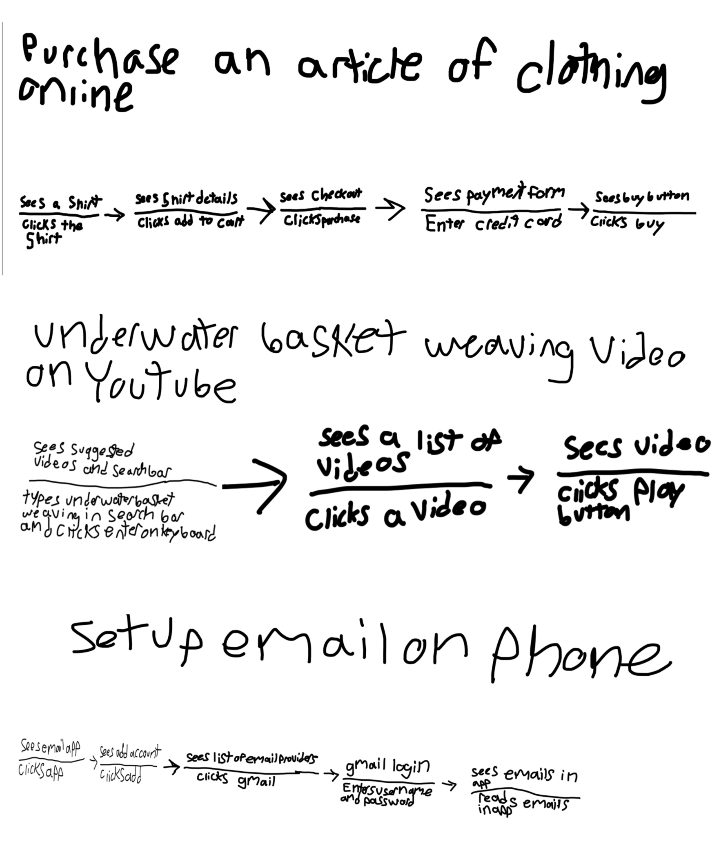 Purchase an article of clothing
online
Sees a Shirt
Clicks the
Shirt
sees Shirt details
Clicks add to cart
sees Checkout
Clicks purchase
Sees payment form
Enter credit card
Sees buy button
Clicks buy
underwater basket weaving Video
on YouTube
sees suggested
videos and search bar
types underwater basket
weaving in search bar
and clicks enter on keyboard
sees a list of
videos
Clicks a video
Sees video
clicks play
button
Setup email on phone
Sees email app
Clicks app
sees add account
clicks add
sees list of email providers
clicks gmail
gmail login
Enters username
and password
sees emails in
app
reads emails
in app